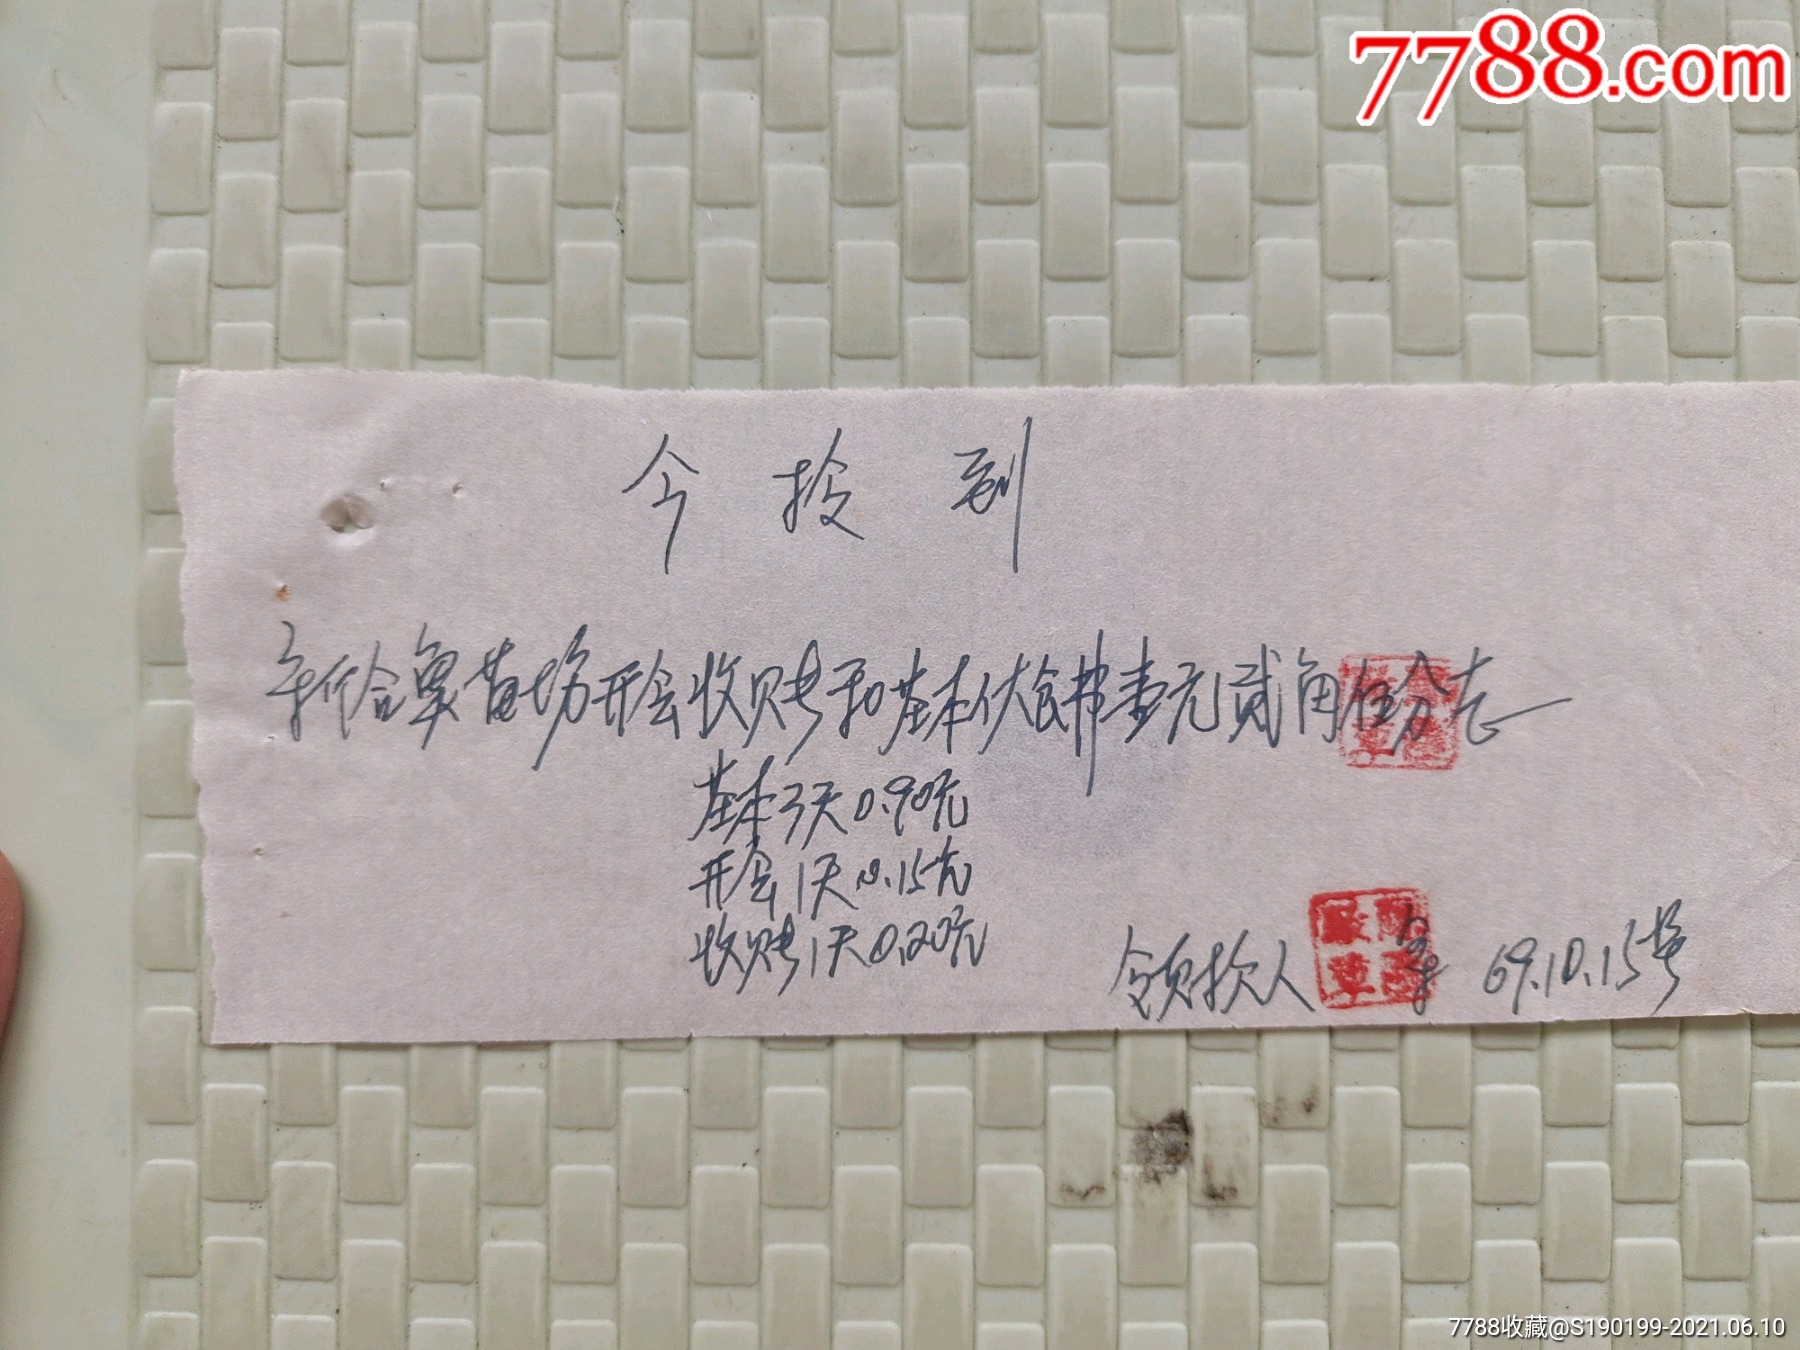 7788.com
今 拎 到
开会收账和基本伙食费壹元贰角伍分
基本3天0.90元
开会1天0.15元
收账1天0.20元
领款人 69.10.15号
7788收藏@S190199-2021.06.10